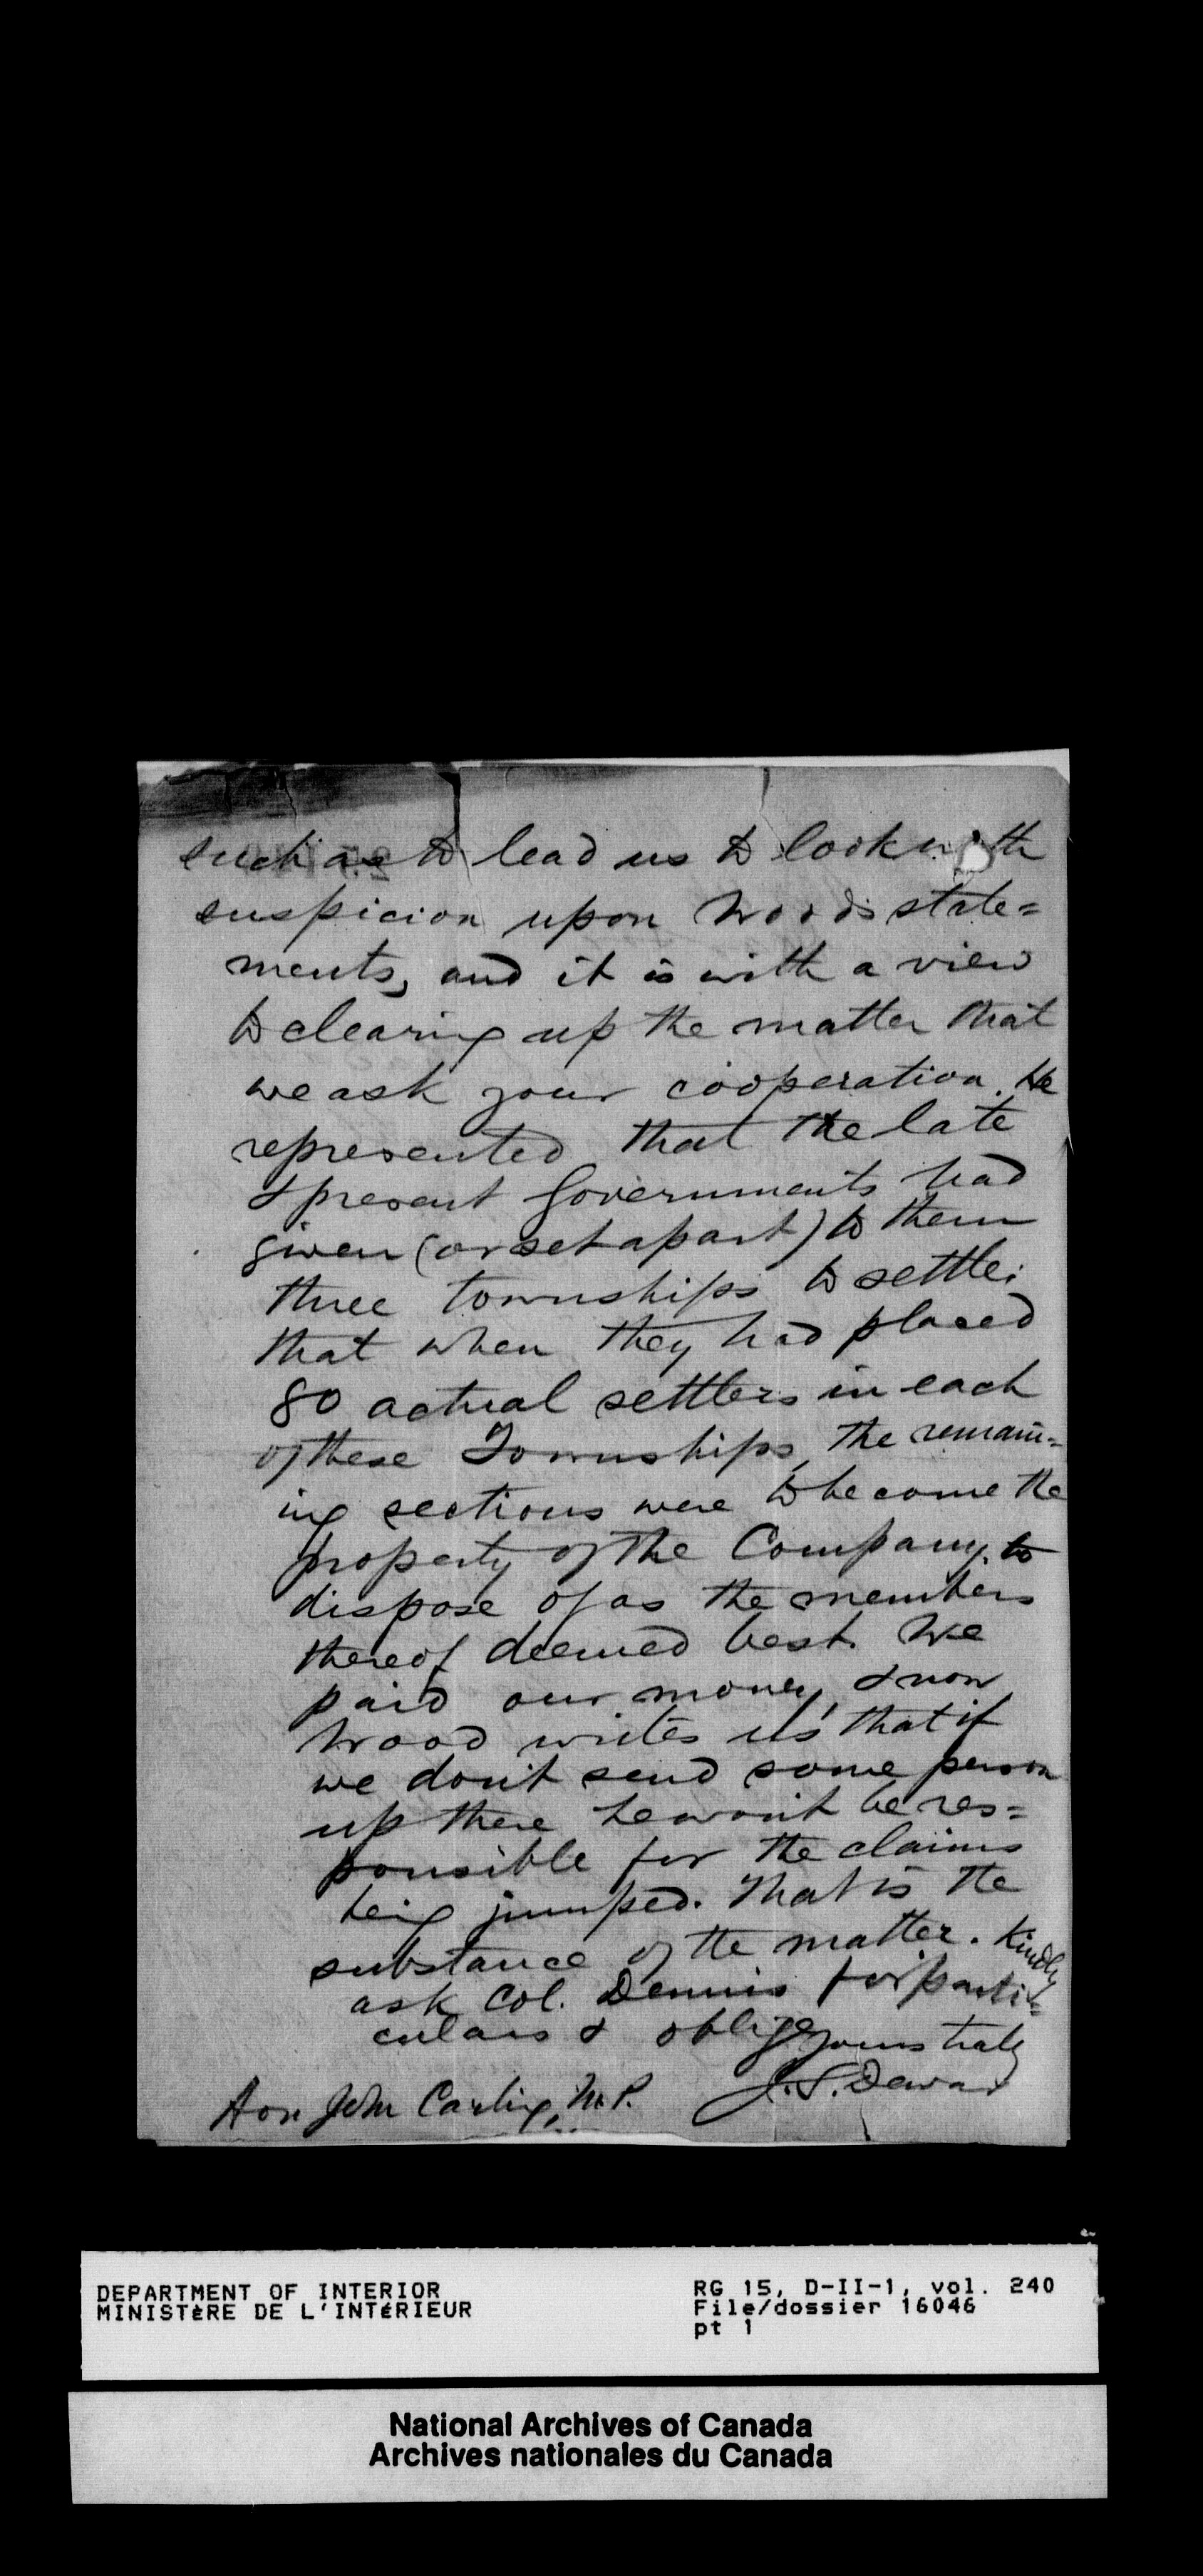 such as to lead us to look with
suspicion upon Wood's state=
ments, and it is with a view
to clearing up the matter that
we ask your coöperation. He
represented that the late
& present Governments had
given (or set apart) to them
three townships to settle;
that when they had placed
80 actual settlers in each
of these Townships, the remain=
ing sections were to become the
property of the Company, to
dispose of as the members
thereof deemed best. We
paid our money, & now
Wood writes us that if
we don't send some person
up there he won't be res=
ponsible for the claims
being jumped. That is the
substance of the matter. Kindly
ask Col. Dennis for parti=
culars & oblige yours truly
J.S. Dewar
Hon John Carling, M.P.
DEPARTMENT OF INTERIOR
MINISTÈRE DE L'INTÉRIEUR
RG 15, D-II-1, vol. 240
File/dossier 16046
pt 1
National Archives of Canada
Archives nationales du Canada